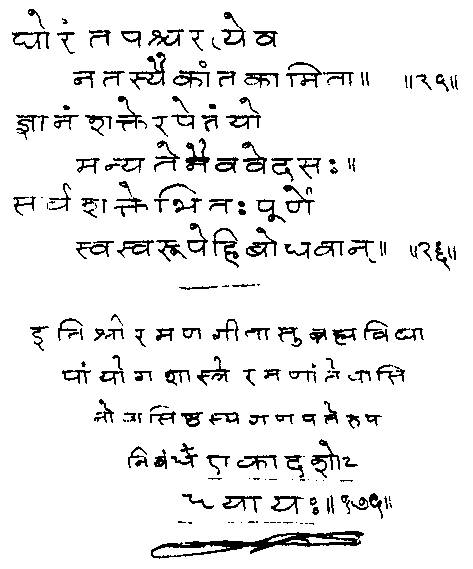 घोरं तपश्चरत्येव
न तस्यैकांतकामिता॥ ॥२५॥
ज्ञानं शक्तेरपेतंयो
मन्यतेनैववेदसः॥
सर्वशक्तेभितःपूर्णे
स्वस्वरूपेहिबोधवान्॥ ॥२६॥
इतिश्रीरमणगीतासुब्रह्मविद्या
यांयोगशास्त्रेरमणांतेवासि
नोवासिष्ठस्यगणपतेरुप
निबंधेएकादशोऽ
ध्यायः॥१७५॥